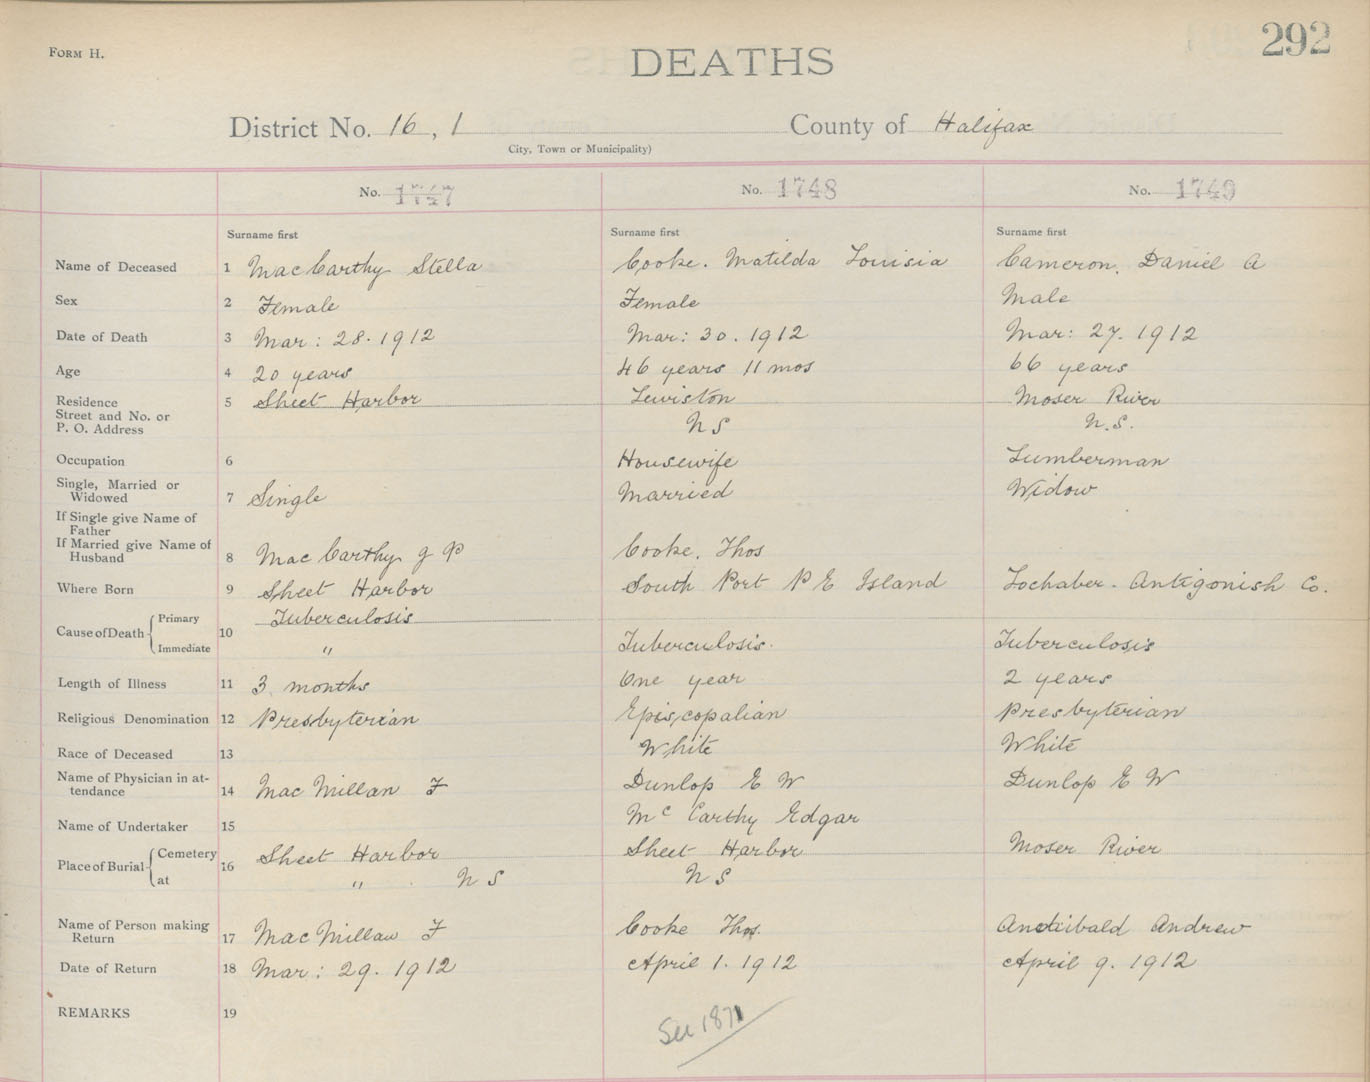 292
FORM H.
DEATHS
District No. 16, 1 County of Halifax
City, Town or Municipality)
No. 1747 No. 1748 No. 1749
Surname first Surname first Surname first
Name of Deceased 1 MacCarthy Stella Cooke. Matilda Louisia Cameron, Daniel A
Sex 2 Female Female Male
Date of Death 3 Mar: 28. 1912 Mar: 30. 1912 Mar: 27. 1912
Age 4 20 years 46 years 11 mos 66 years
Residence 5 Sheet Harbor Lewiston Moser River
Street and No. or
P. O. Address N S N.S.
Occupation 6 Housewife Lumberman
Single, Married or
Widowed 7 Single Married Widow
If Single give Name of
Father
If Married give Name of
Husband 8 MacCarthy J P Cooke. Thos
Where Born 9 Sheet Harbor South Port P E Island Lochaber. Antigonish Co.
Cause of Death Primary 10 Tuberculosis Tuberculosis. Tuberculosis
Immediate "
Length of Illness 11 3 months One year 2 years
Religious Denomination 12 Presbyterian Episcopalian Presbyterian
Race of Deceased 13 White White
Name of Physician in at-
tendance 14 MacMillan F Dunlop E W Dunlop E W
Name of Undertaker 15 Mc Carthy Edgar
Place of Burial Cemetery 16 Sheet Harbor Sheet Harbor Moser River
at " N S N S
Name of Person making
Return 17 MacMillan F Cooke Thos. Andrew
Date of Return 18 Mar: 29. 1912 April 1. 1912 April 9. 1912
REMARKS 19
See 1871